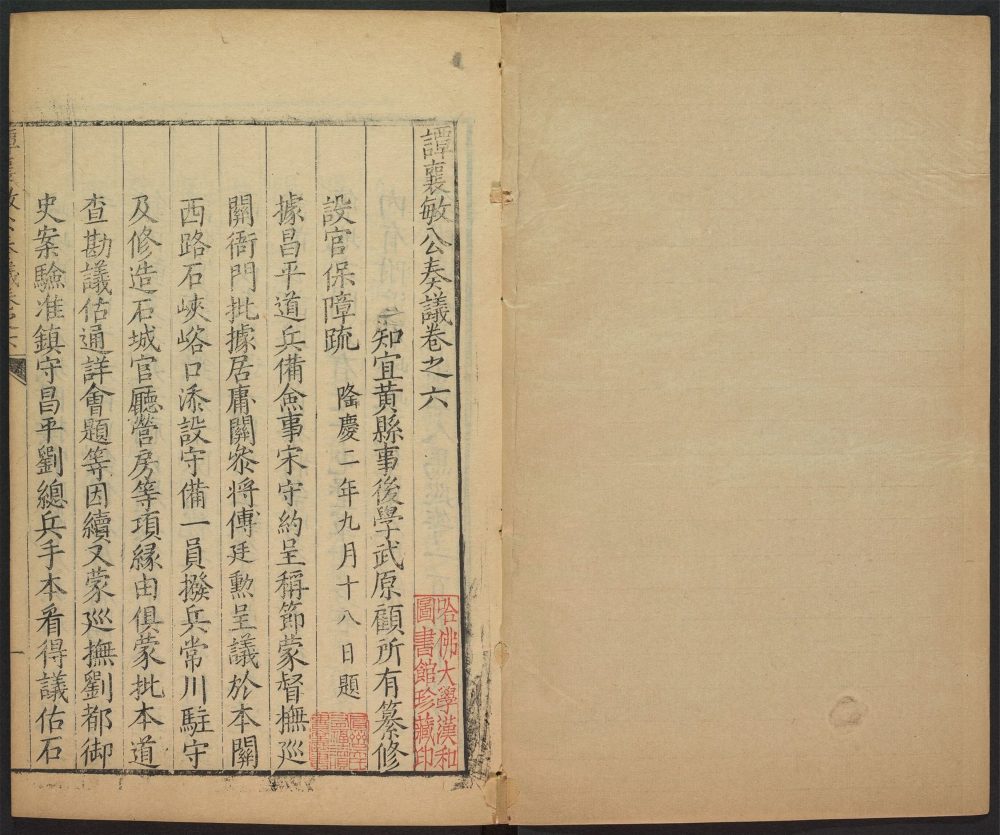 譚襄敏公奏議卷之六
知宜黃縣事後學武原顧所有纂修
設官保障疏 隆慶二年九月十八日題
據昌平道兵備僉事宋守約呈稱節蒙督撫巡
關衙門批據居庸關叅將傅廷勳呈議於本關
西路石峽峪口添設守備一員撥兵常川駐守
及修造石城官廳營房等項緣由俱蒙批本道
查勘議估通詳會題等因續又蒙廵撫劉都御
史案驗准鎮守昌平劉總兵手本看得議估石
譚襄敏公奏議卷之六
一
哈佛大學漢和
圖書館珍藏印